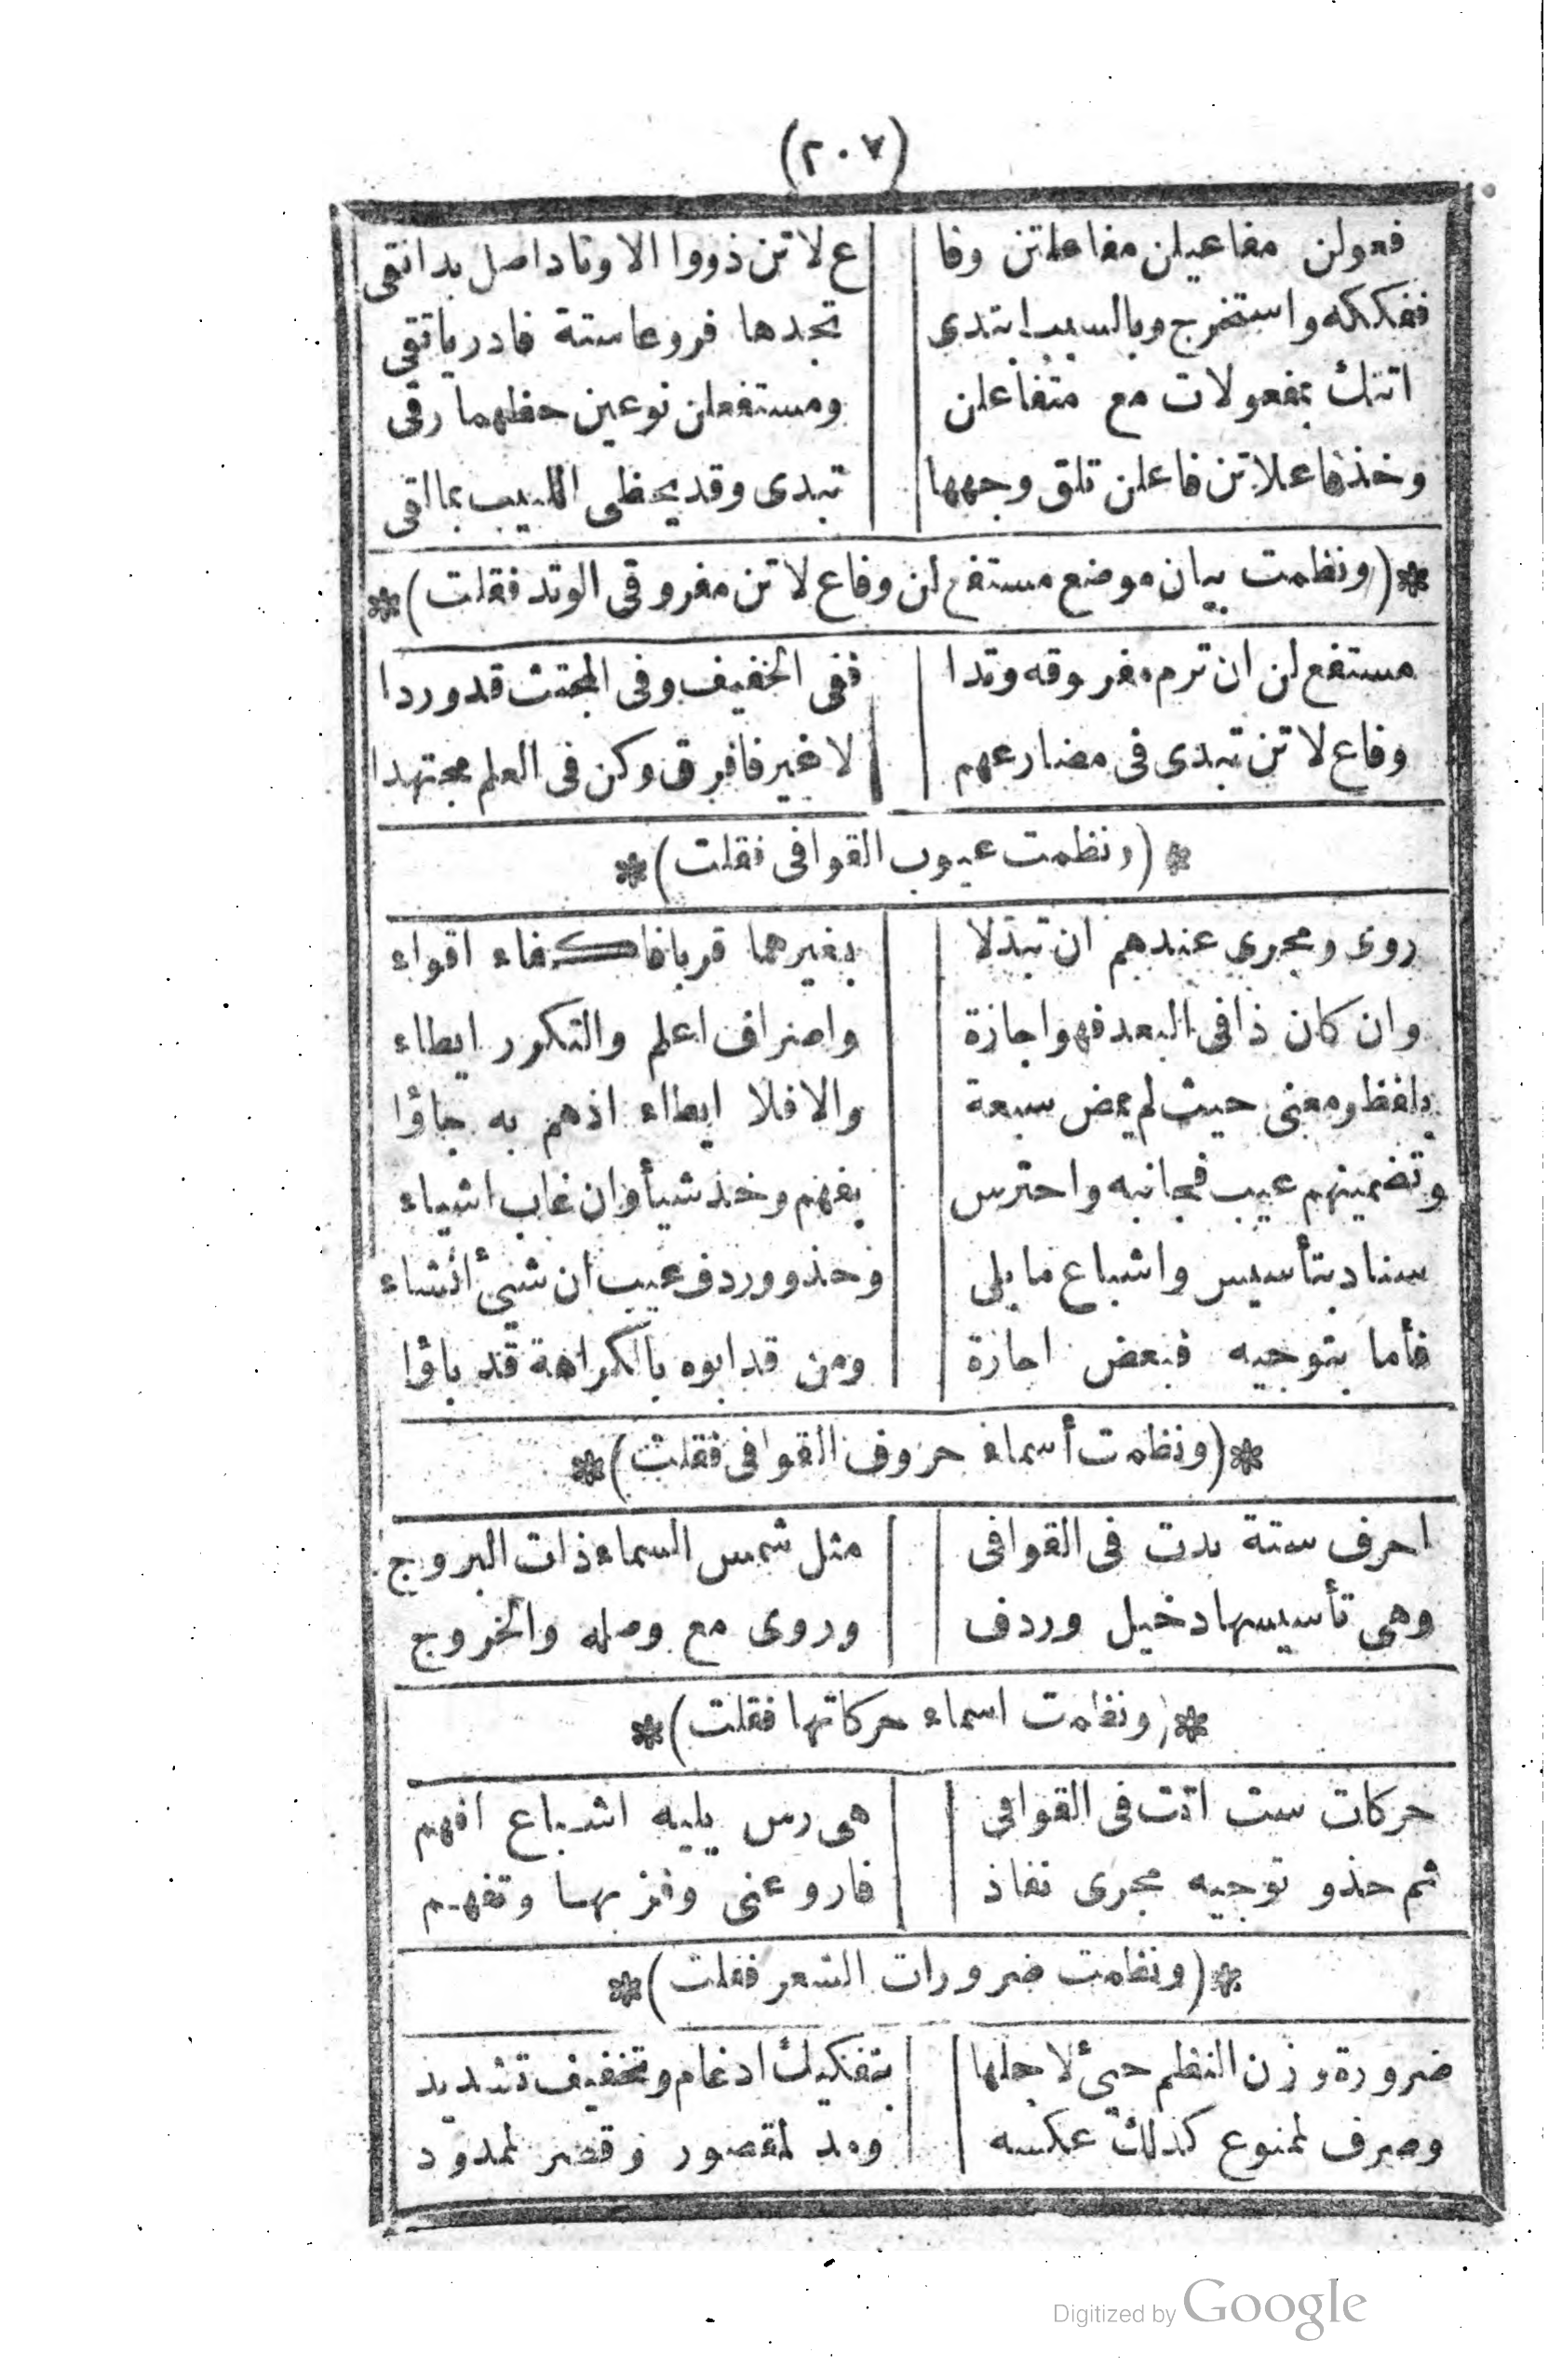 (٢٠٧)
فعولن مفاعيلن مفاعلتن وفا ع لاتن ذووا الاوتاد اصل بدا نقى
ففككه واستخرج وبالسبب ابتدى تجدها فروعا ستة فادر ياتقى
اتتك بمفعولات مع متفاعلن ومستفعلن نوعين حفظهما رقى
وخذ فاعلاتن فاعلن تلق وجهها تبدى وقد يحظى اللبيب بما القى
(ونظمت بيان موضع مستفع لن وفاع لاتن مفروقى الوتد فقلت)
مستفع لن ان ترم مفروقه وتدا ففى الخفيف وفى المجتث قد وردا
وفاع لاتن تبدى فى مضارعهم لا غير فافرق وكن فى العلم مجتهدا
(ونظمت عيوب القوافى فقلت)
روى ومجرى عندهم ان تبدلا بغيرهما قربا فاكفاء اقواء
وان كان ذا فى البعد فهو اجازة واصراف اعلم والتكرر ايطاء
بلفظ ومعنى حيث لم يمض سبعة والا فلا ايطاء اذهم به جاؤا
وتضمينهم عيب فجانبه واحترس بفهم وخذ شيأ وان غاب اشياء
سناد بتأسيس واشباع ما يلى وحذو وردف عيب ان شىئ انشاء
فأما بتوجيه فبعض اجازة ومن قد ابوه بالكراهة قد باؤا
(ونظمت أسماء حروف القوافى فقلت)
احرف ستة بدت فى القوافى مثل شمس السماء ذات البروج
وهى تأسيسها دخيل وردف وروى مع وصله والخروج
(ونظمت اسماء حركاتها فقلت)
حركات ست اتت فى القوافى هى رس يليه اشباع افهم
ثم حذو توجيه مجرى نفاذ فاروعنى وفز بها وتفهم
(ونظمت ضرورات الشعر فقلت)
ضرورة وزن النظم جىئ لاجلها بتفكيك ادغام وتخفيف تشديد
وصرف لممنوع كذلك عكسه ومد لمقصور وقصر لممدود
Digitized by Google